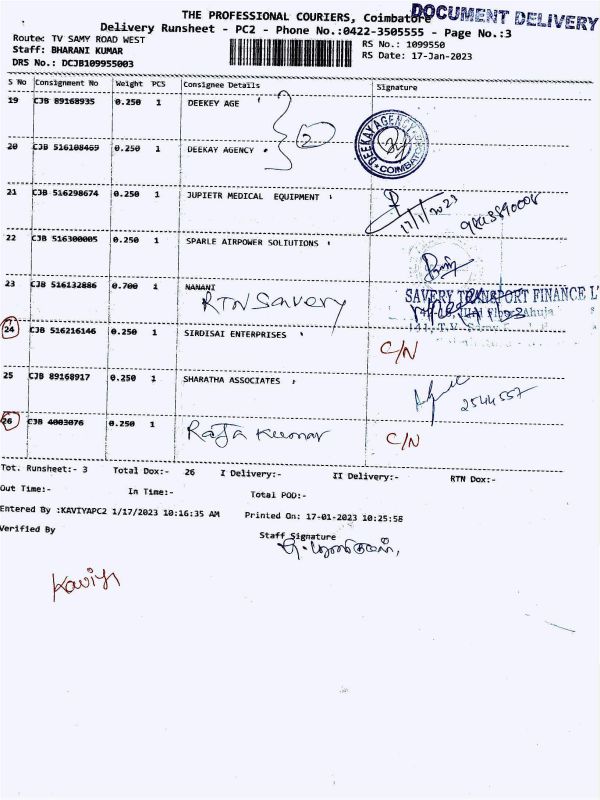 THE PROFESSIONAL COURIERS, Coimbatore
DOCUMENT DELIVERY
Delivery Runsheet - PC2 - Phone No.:0422-3505555 - Page No.:3
Route: TV SAMY ROAD WEST
RS No.: 1099550
Staff: BHARANI KUMAR
RS Date: 17-Jan-2023
DRS No.: DCJB109955003
S No Consignment No Weight PCS Consignee Details Signature
19 CJB 89168935 0.250 1 DEEKEY AGE
2
DEEKAY AGENCY COIMBATORE
20 CJB 516108469 0.250 1 DEEKAY AGENCY
21 CJB 516298674 0.250 1 JUPIETR MEDICAL EQUIPMENT
17/1/2023
22 CJB 516300005 0.250 1 SPARLE AIRPOWER SOLIUTIONS
23 CJB 516132886 0.700 1 NANANI
RTN Savery
SAVERY TRANSPORT FINANCE L
24 CJB 516216146 0.250 1 SIRDISAI ENTERPRISES
C/N
25 CJB 89168917 0.250 1 SHARATHA ASSOCIATES
2544557
26 CJB 4003076 0.250 1 Raja Kumar C/N
Tot. Runsheet:- 3 Total Dox:- 26 I Delivery:- II Delivery:- RTN Dox:-
Out Time:- In Time:- Total POD:-
Entered By :KAVIYAPC2 1/17/2023 10:16:35 AM Printed On: 17-01-2023 10:25:58
Verified By Staff Signature
Kaviya